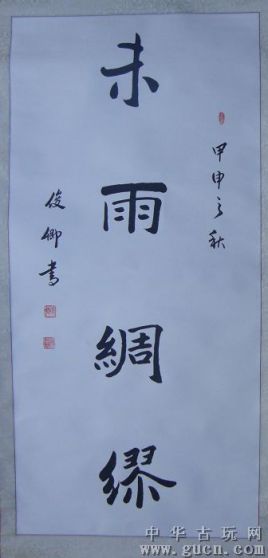 甲申之秋
未雨綢缪
俊卿書
中华古玩网
www.gucn.com